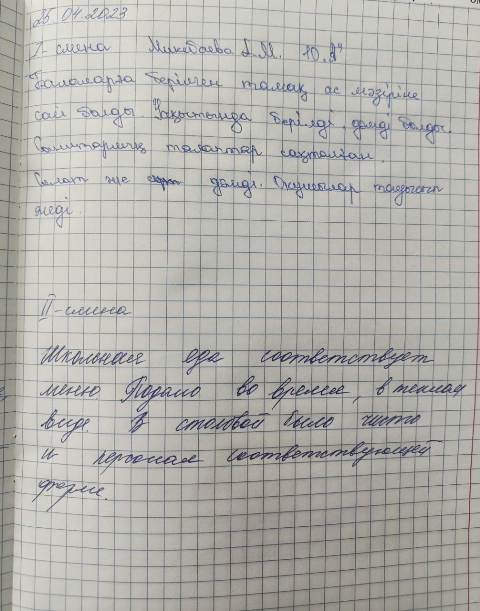 25.04.2023
I-смена Микебаева А.М. 10 "А"
Балаларға берілген тамақ ас мәзіріне
сай болды. Уақытында берілді, дәмді болды.
Санитарлық талаптар сақталған.
Салат және дәмді. Оқушылар тауысып
жеді.
II-смена
Школьная еда соответствует
меню Подано во время, в теплом
виде. В столовой было чисто
и персонал соответствующей
форме.